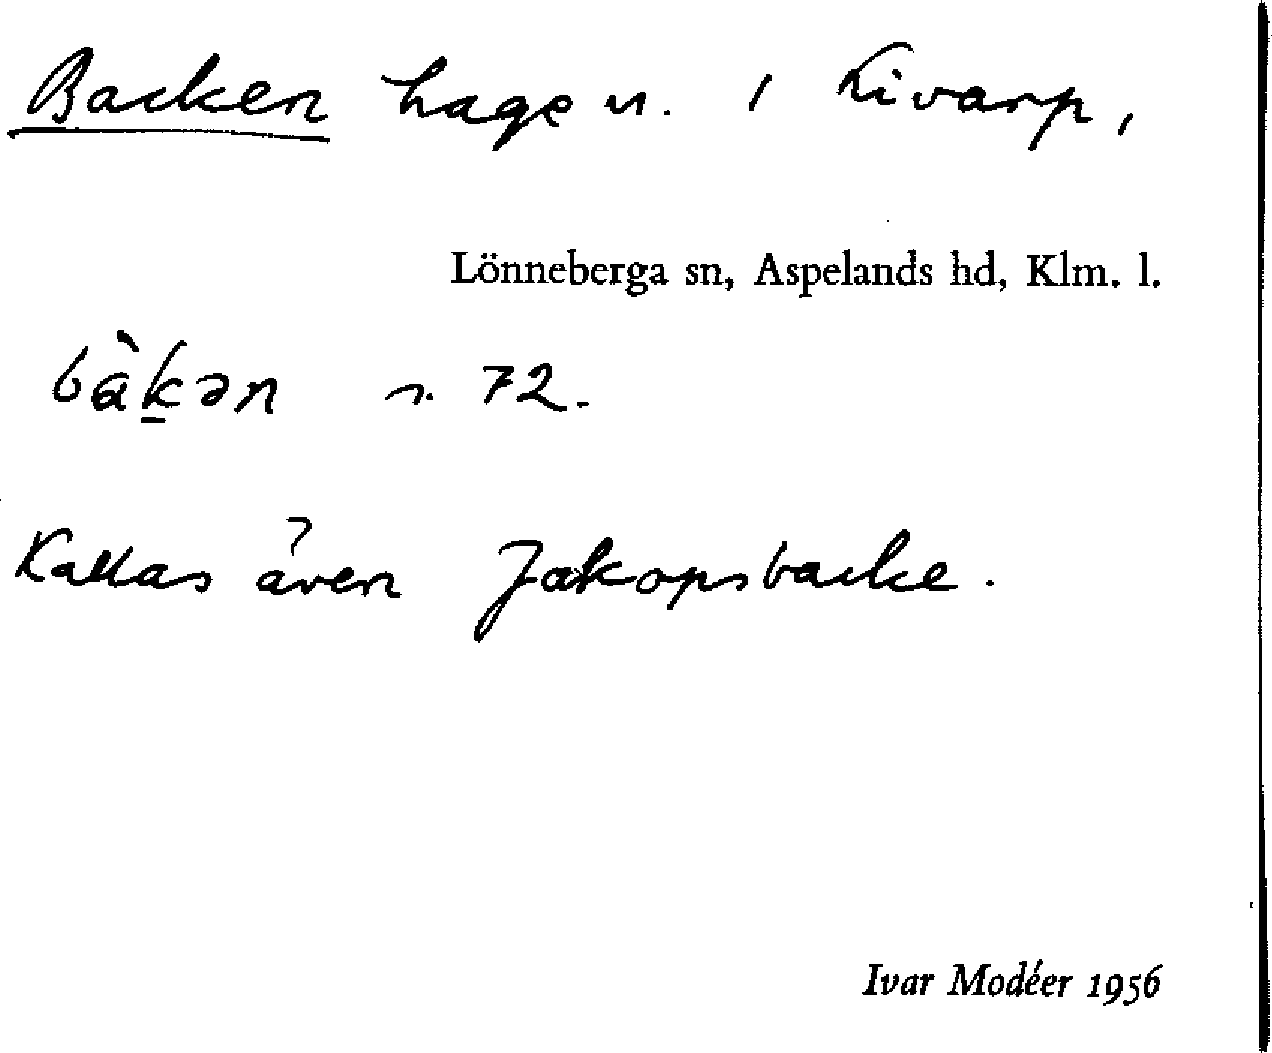 Backen hage u. / Kivarp,
Lönneberga sn, Aspelands hd, Klm. l.
bàkən s. 72.
Kallas även Jakopsbacke.
Ivar Modéer 1956